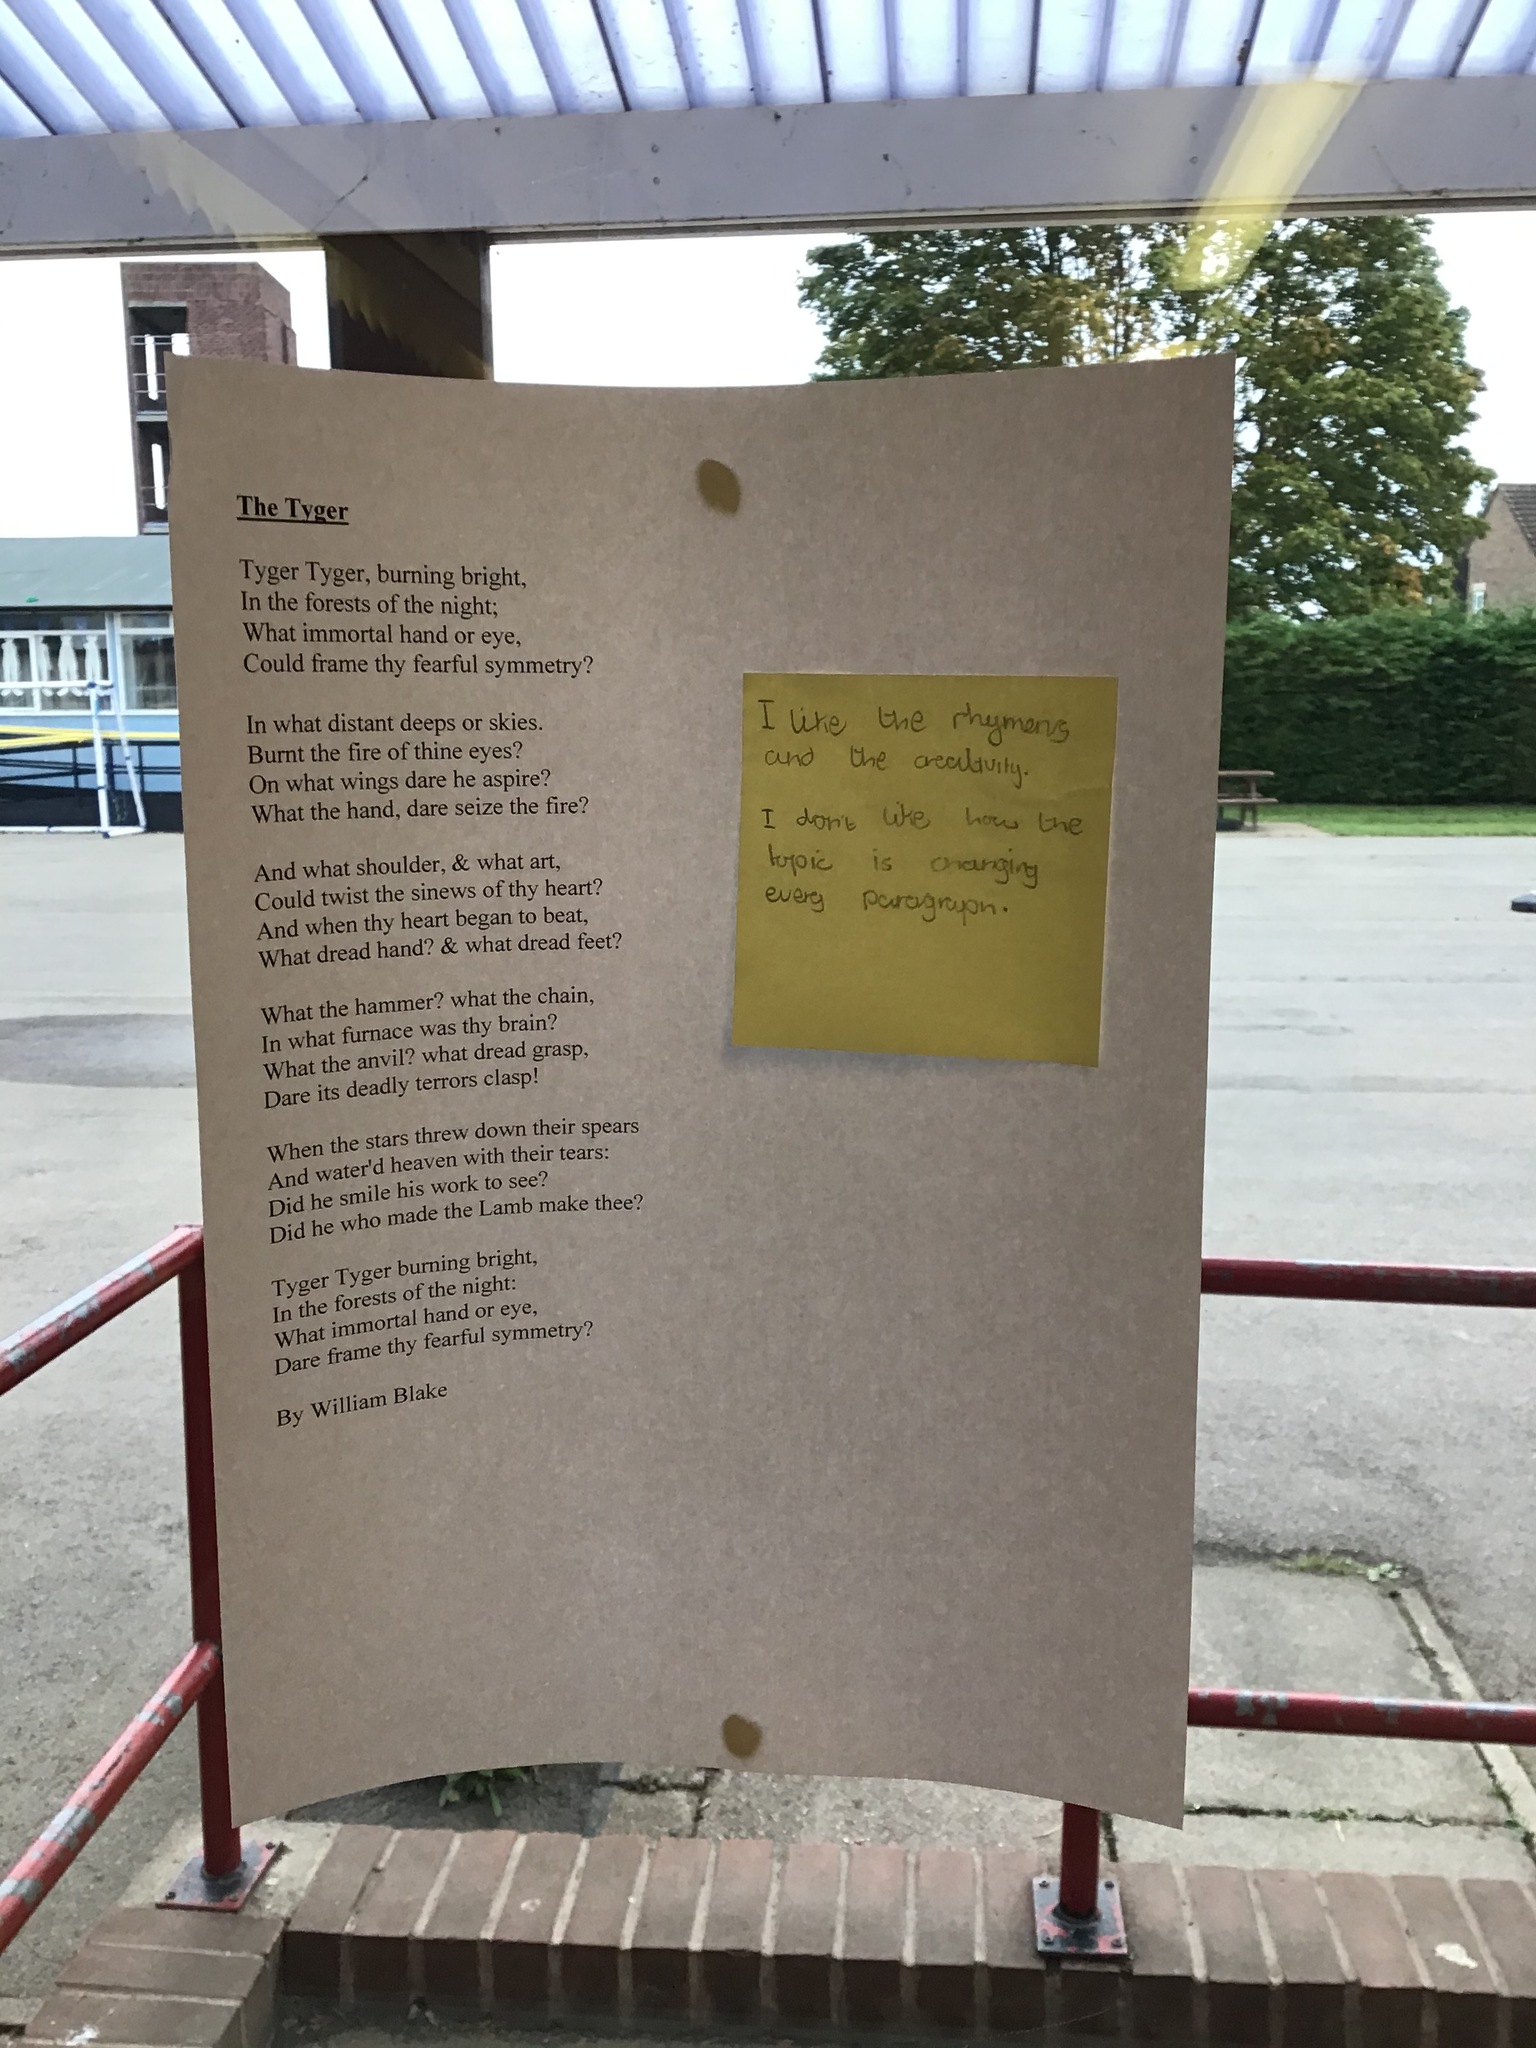 The Tyger
Tyger Tyger, burning bright,
In the forests of the night;
What immortal hand or eye,
Could frame thy fearful symmetry?
In what distant deeps or skies.
Burnt the fire of thine eyes?
On what wings dare he aspire?
What the hand, dare seize the fire?
And what shoulder, & what art,
Could twist the sinews of thy heart?
And when thy heart began to beat,
What dread hand? & what dread feet?
What the hammer? what the chain,
In what furnace was thy brain?
What the anvil? what dread grasp,
Dare its deadly terrors clasp!
When the stars threw down their spears
And water'd heaven with their tears:
Did he smile his work to see?
Did he who made the Lamb make thee?
Tyger Tyger burning bright,
In the forests of the night:
What immortal hand or eye,
Dare frame thy fearful symmetry?
By William Blake
I like the
and the creativity.
I don't like how the
topic is changing
every paragraph.